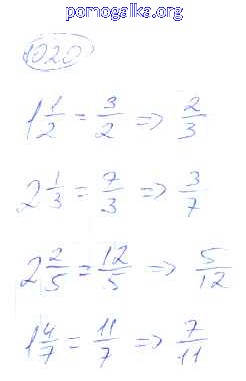 pomogalka.org
1020
1 1/2 = 3/2 => 2/3
2 1/3 = 7/3 => 3/7
2 2/5 = 12/5 => 5/12
1 4/7 = 11/7 => 7/11